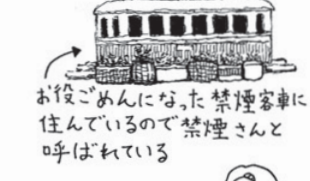 お役ごめんになった禁煙客車に
住んでいるので禁煙さんと
呼ばれている